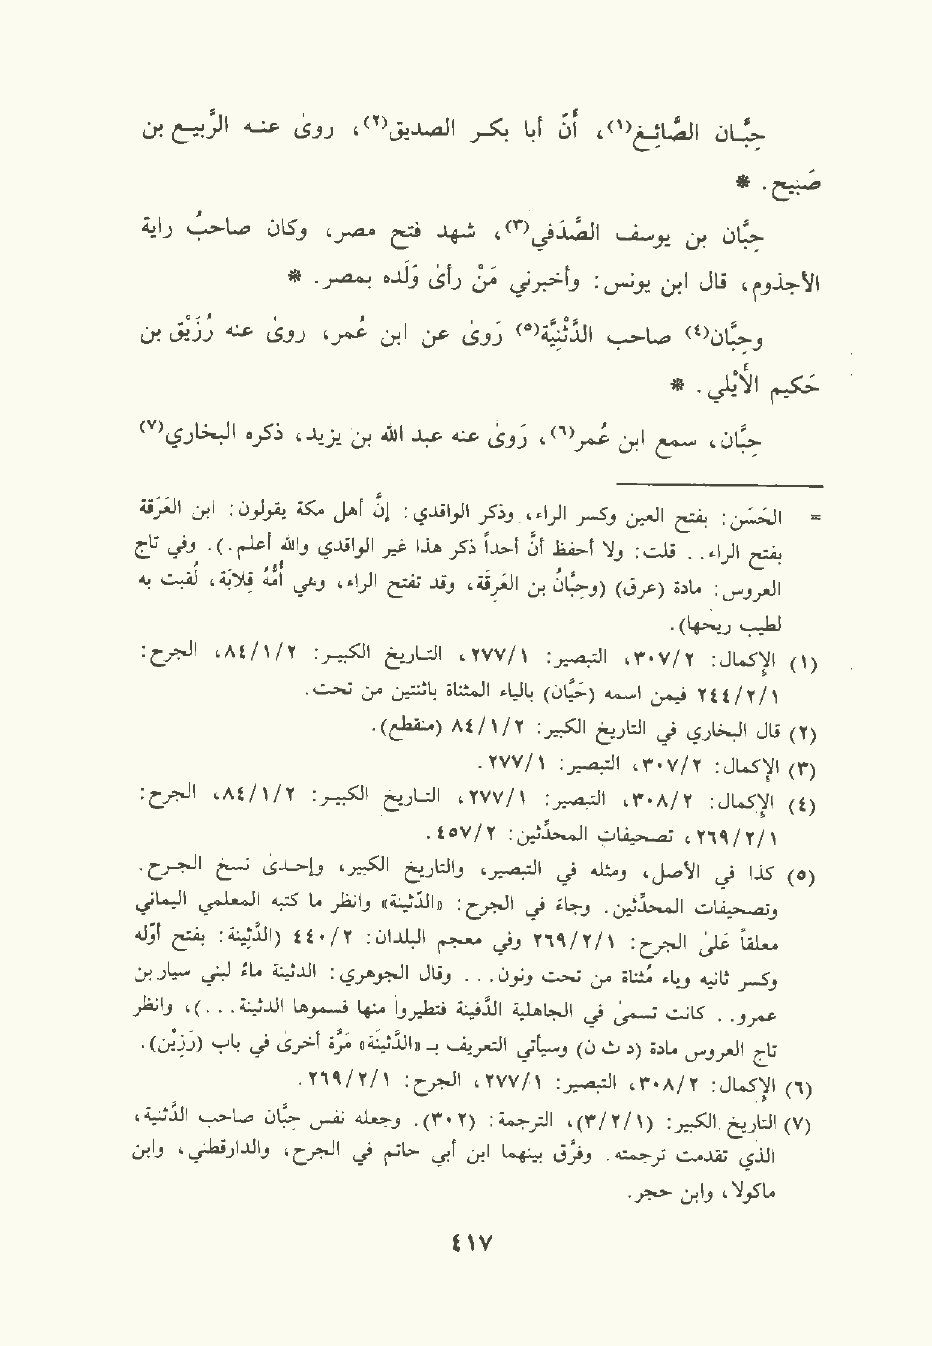 حِبَّان الصَّائِغ(١)، أَنّ أبا بكر الصديق(٢)، روىٰ عنه الرَّبيع بن
صَبِيح. *
حِبَّان بن يوسف الصَّدَفي(٣)، شهد فتح مصر، وكان صاحبُ راية
الأجذوم، قال ابن يونس: وأخبرني مَنْ رأىٰ وَلَده بمصر. *
وحِبَّان(٤) صاحب الدَّثْنِيَّة(٥) رَوىٰ عن ابن عُمر، روىٰ عنه رُزَيْق بن
حَكيم الأَيْلي. *
حِبَّان، سمع ابن عُمر(٦)، رَوىٰ عنه عبد الله بن يزيد، ذكره البخاري(٧)
= الحَسَن: بفتح العين وكسر الراء، وذكر الواقدي: إنّ أهل مكة يقولون: ابن العَرَقة
بفتح الراء.. قلت: ولا أحفظ أن أحداً ذكر هذا غير الواقدي والله أعلم.). وفي تاج
العروس: مادة (عرق) (وحِبَّانُ بن العَرِقَة، وقد تفتح الراء، وهي أُمُّهُ قِلَابَة، لُقبت به
لطيب ريحها).
(١) الإكمال: ٣٠٧/٢، التبصير: ٢٧٧/١، التاريخ الكبير: ٨٤/١/٢، الجرح:
٢٤٤/٢/١ فيمن اسمه (حَيَّان) بالياء المثناة باثنتين من تحت.
(٢) قال البخاري في التاريخ الكبير: ٨٤/١/٢ (منقطع).
(٣) الإكمال: ٣٠٧/٢، التبصير: ٢٧٧/١.
(٤) الإكمال: ٣٠٨/٢، التبصير: ٢٧٧/١، التاريخ الكبير: ٨٤/١/٢، الجرح:
٢٦٩/٢/١، تصحيفات المحدّثين: ٤٥٧/٢.
(٥) كذا في الأصل، ومثله في التبصير، والتاريخ الكبير، وإحدىٰ نسخ الجرح.
وتصحيفات المحدّثين. وجاء في الجرح: «الدَّثينة» وانظر ما كتبه المعلمي اليماني
معلقاً عَلىٰ الجرح: ٢٦٩/٢/١ وفي معجم البلدان: ٤٤٠/٢ (الدَّثِينَة: بفتح أوّله
وكسر ثانيه وياء مُثناة من تحت ونون... وقال الجوهري: الدثينة ماء لبني سيار بن
عمرو.. كانت تسمىٰ في الجاهلية الدَّفينة فتطيروا منها فسموها الدثينة...)، وانظر
تاج العروس مادة (د ث ن) وسيأتي التعريف بـ «الدَّثينَة» مَرَّة أخرىٰ في باب (رَزِيْن).
(٦) الإكمال: ٣٠٨/٢، التبصير: ٢٧٧/١، الجرح: ٢٦٩/٢/١.
(٧) التاريخ الكبير: (٣/٢/١)، الترجمة: (٣٠٢). وجعله نفس حبَّان صاحب الدَّثنية،
الذي تقدمت ترجمته. وفرَّق بينهما ابن أبي حاتم في الجرح، والدارقطني، وابن
ماكولا، وابن حجر.
٤١٧